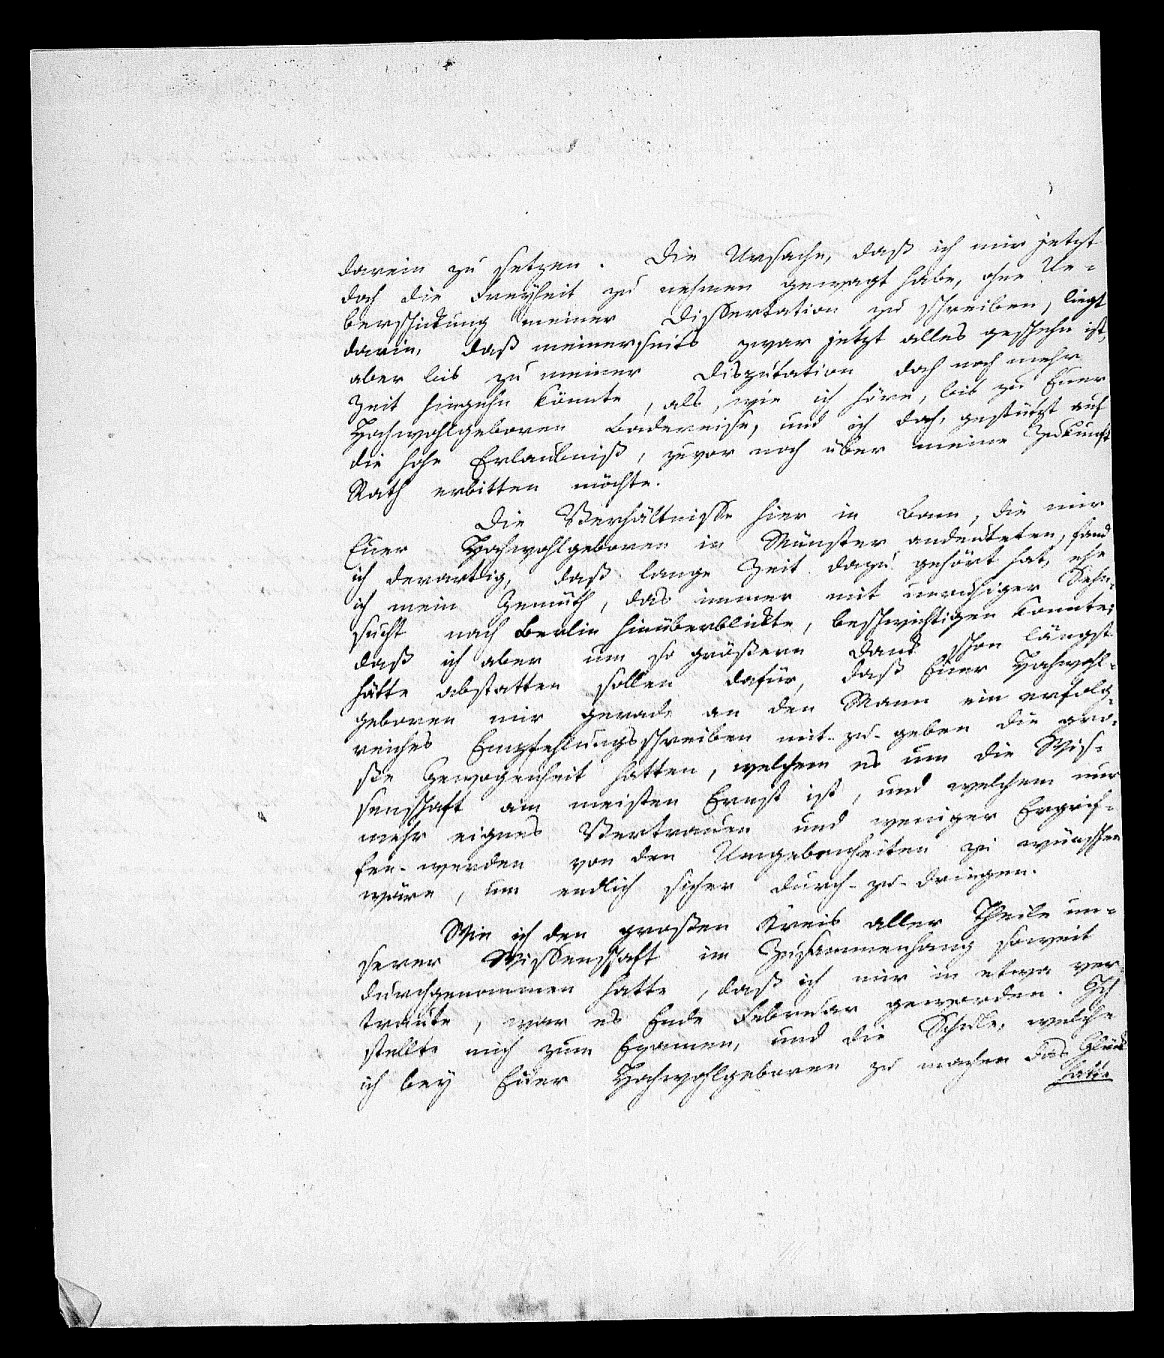 darein zu setzen. Die Ursache, daß ich mir jetzt
doch die Freyheit zu nehmen gewagt habe, ohne Ue-
berschickung meiner Dissertation zu schreiben, liegt
darin, daß meinerseits zwar jetzt alles geschehn ist,
aber bis zu meiner Disputation doch noch mehr
Zeit hingehn könnte, als, wie ich höre, bis zu Euer
Hochwohlgeboren Badereise, und ich doch, gestützt auf
die hohe Erlaubniß, zuvor noch über meine Zukunft
Rath erbitten möchte.
Die Verhältnisse hier in Bonn, die mir
Euer Hochwohlgeboren in Münster andeuteten, fand
ich derartig, daß lange Zeit dazu gehört hat, ehe
ich mein Gemüth, das immer mit unruhiger Sehn-
sucht nach Berlin hinüberblickte, beschwichtigen konnte;
daß ich aber um so größern Dank schon längst
hätte abstatten sollen dafür, daß Euer Hochwohl-
geboren mir gerade an den Mann ein erfolg-
reiches Empfehlungsschreiben mit-zu-geben die gro-
ße Gewogenheit hatten, welchem es um die Wis-
senschaft am meisten Ernst ist, und welchem nur
mehr eignes Vertrauen und weniger Ergrif-
fen-werden von den Umgebenheiten zu wünschen
wäre, um endlich sicher durch-zu-dringen.
Wie ich den großen Kreis aller Theile un-
serer Wissenschaft im Zusammenhang soweit
durchgenommen hatte, daß ich mir in etwa ver-
traute, war es Ende Februar geworden. Ich
stellte mich zum Examen, und die Schule, welche
ich bey Euer Hochwohlgeboren zu machen das Glück
hatte